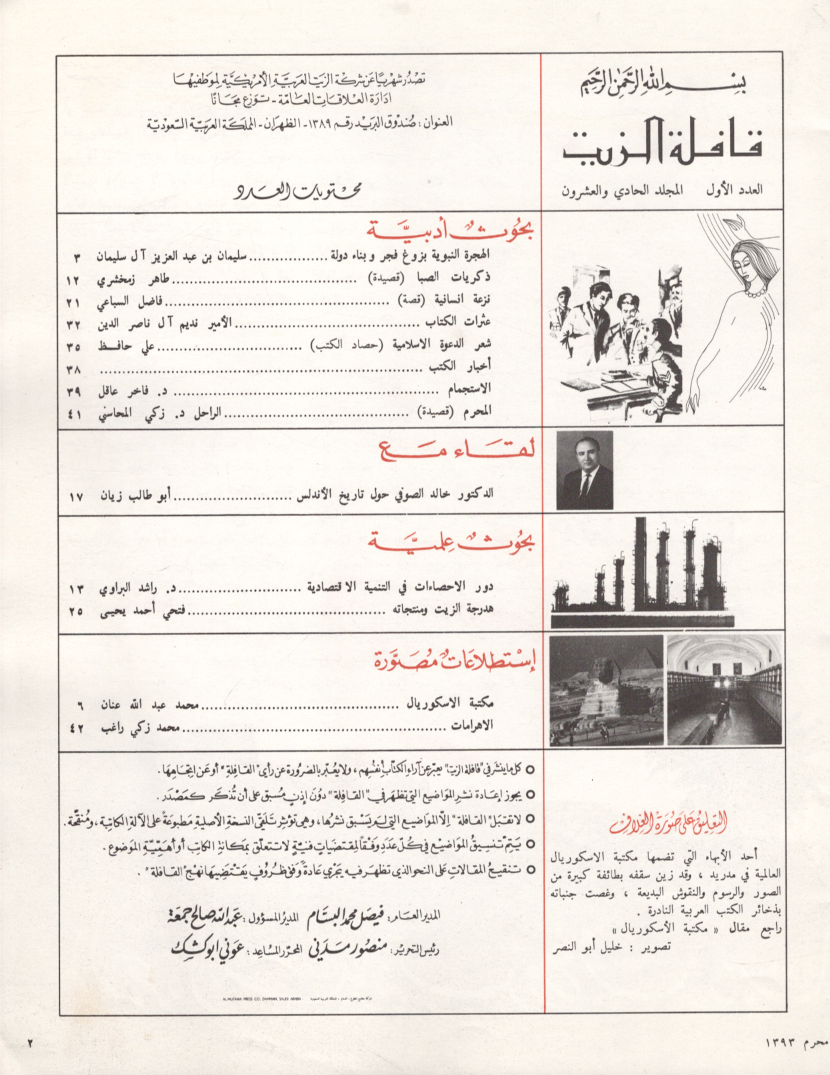 بِسْمِ اللهِ الرَّحْمٰنِ الرَّحِيْمِ
قافلة الزيت
العدد الأول المجلد الحادي والعشرون
تصدر شهريًا عن شركة الزيت العربية الأمريكية لموظفيها
ادارة العلاقات العامة - توزع مجانًا
العنوان : صندوق البريد رقم ١٣٨٩ - الظهران - المملكة العربية السعودية
محتويات العدد
بحوث أدبية
الهجرة النبوية بزوغ فجر وبناء دولة .................. سليمان بن عبد العزيز آل سليمان ٣
ذكريات الصبا (قصيدة) .................. طاهر زمخشري ١٢
نزعة انسانية (قصة) .................. فاضل السباعي ٢١
عثرات الكتاب .................. الأمير نديم آل ناصر الدين ٣٢
شعر الدعوة الاسلامية (حصاد الكتب) .................. علي حافظ ٣٥
أخبار الكتب .................. ٣٨
الاستجمام .................. د. فاخر عاقل ٣٩
المحرم (قصيدة) .................. الراحل د. زكي المحاسني ٤١
لقاء مع
الدكتور خالد الصوفي حول تاريخ الأندلس .................. أبو طالب زيان ١٧
بحوث علمية
دور الاحصاءات في التنمية الاقتصادية .................. د. راشد البراوي ١٣
هدرجة الزيت ومنتجاته .................. فتحي أحمد يحيى ٢٥
إستطلاعات مصورة
مكتبة الاسكوريال .................. محمد عبد الله عنان ٦
الاهرامات .................. محمد زكي راغب ٤٢
كل ما ينشر في "قافلة الزيت" يعبر عن آراء الكتاب أنفسهم ، ولا يعبر بالضرورة عن رأي "القافلة" أو عن اتجاهها .
يجوز إعادة نشر المواضيع التي تظهر في "القافلة" دون إذن مسبق على أن تذكر كمصدر .
لا تقبل "القافلة" إلا المواضيع التي لم يسبق نشرها ، وهي تؤثر تلقي النسخة الأصلية مطبوعة على الآلة الكاتبة ، ومنقحة .
يتم تنسيق المواضيع في كل عدد وفقًا لمقتضيات فنية لا تتعلق بمكانة الكاتب أو أهمية الموضوع .
تنقيح المقالات على النحو الذي تظهر فيه يجري عادة وفق ظروف يقتضيها نهج "القافلة" .
المدير العام : فيصل محمد البسام المدير المسؤول : عبد الله صالح جمعة
رئيس التحرير : منصور مدني المحرر المساعد : عوني ابو كشك
شركة مطابع المطوع - الدمام - المملكة العربية السعودية AL-MUTAWA PRESS CO. DAMMAM, SAUDI ARABIA
التعليق على صورة الغلاف
أحد الأبهاء التي تضمها مكتبة الاسكوريال
العالمية في مدريد ، وقد زين سقفه بطائفة كبيرة من
الصور والرسوم والنقوش البديعة ، وغصت جنباته
بذخائر الكتب العربية النادرة .
راجع مقال « مكتبة الأسكوريال »
تصوير : خليل أبو النصر
محرم ١٣٩٣
٢